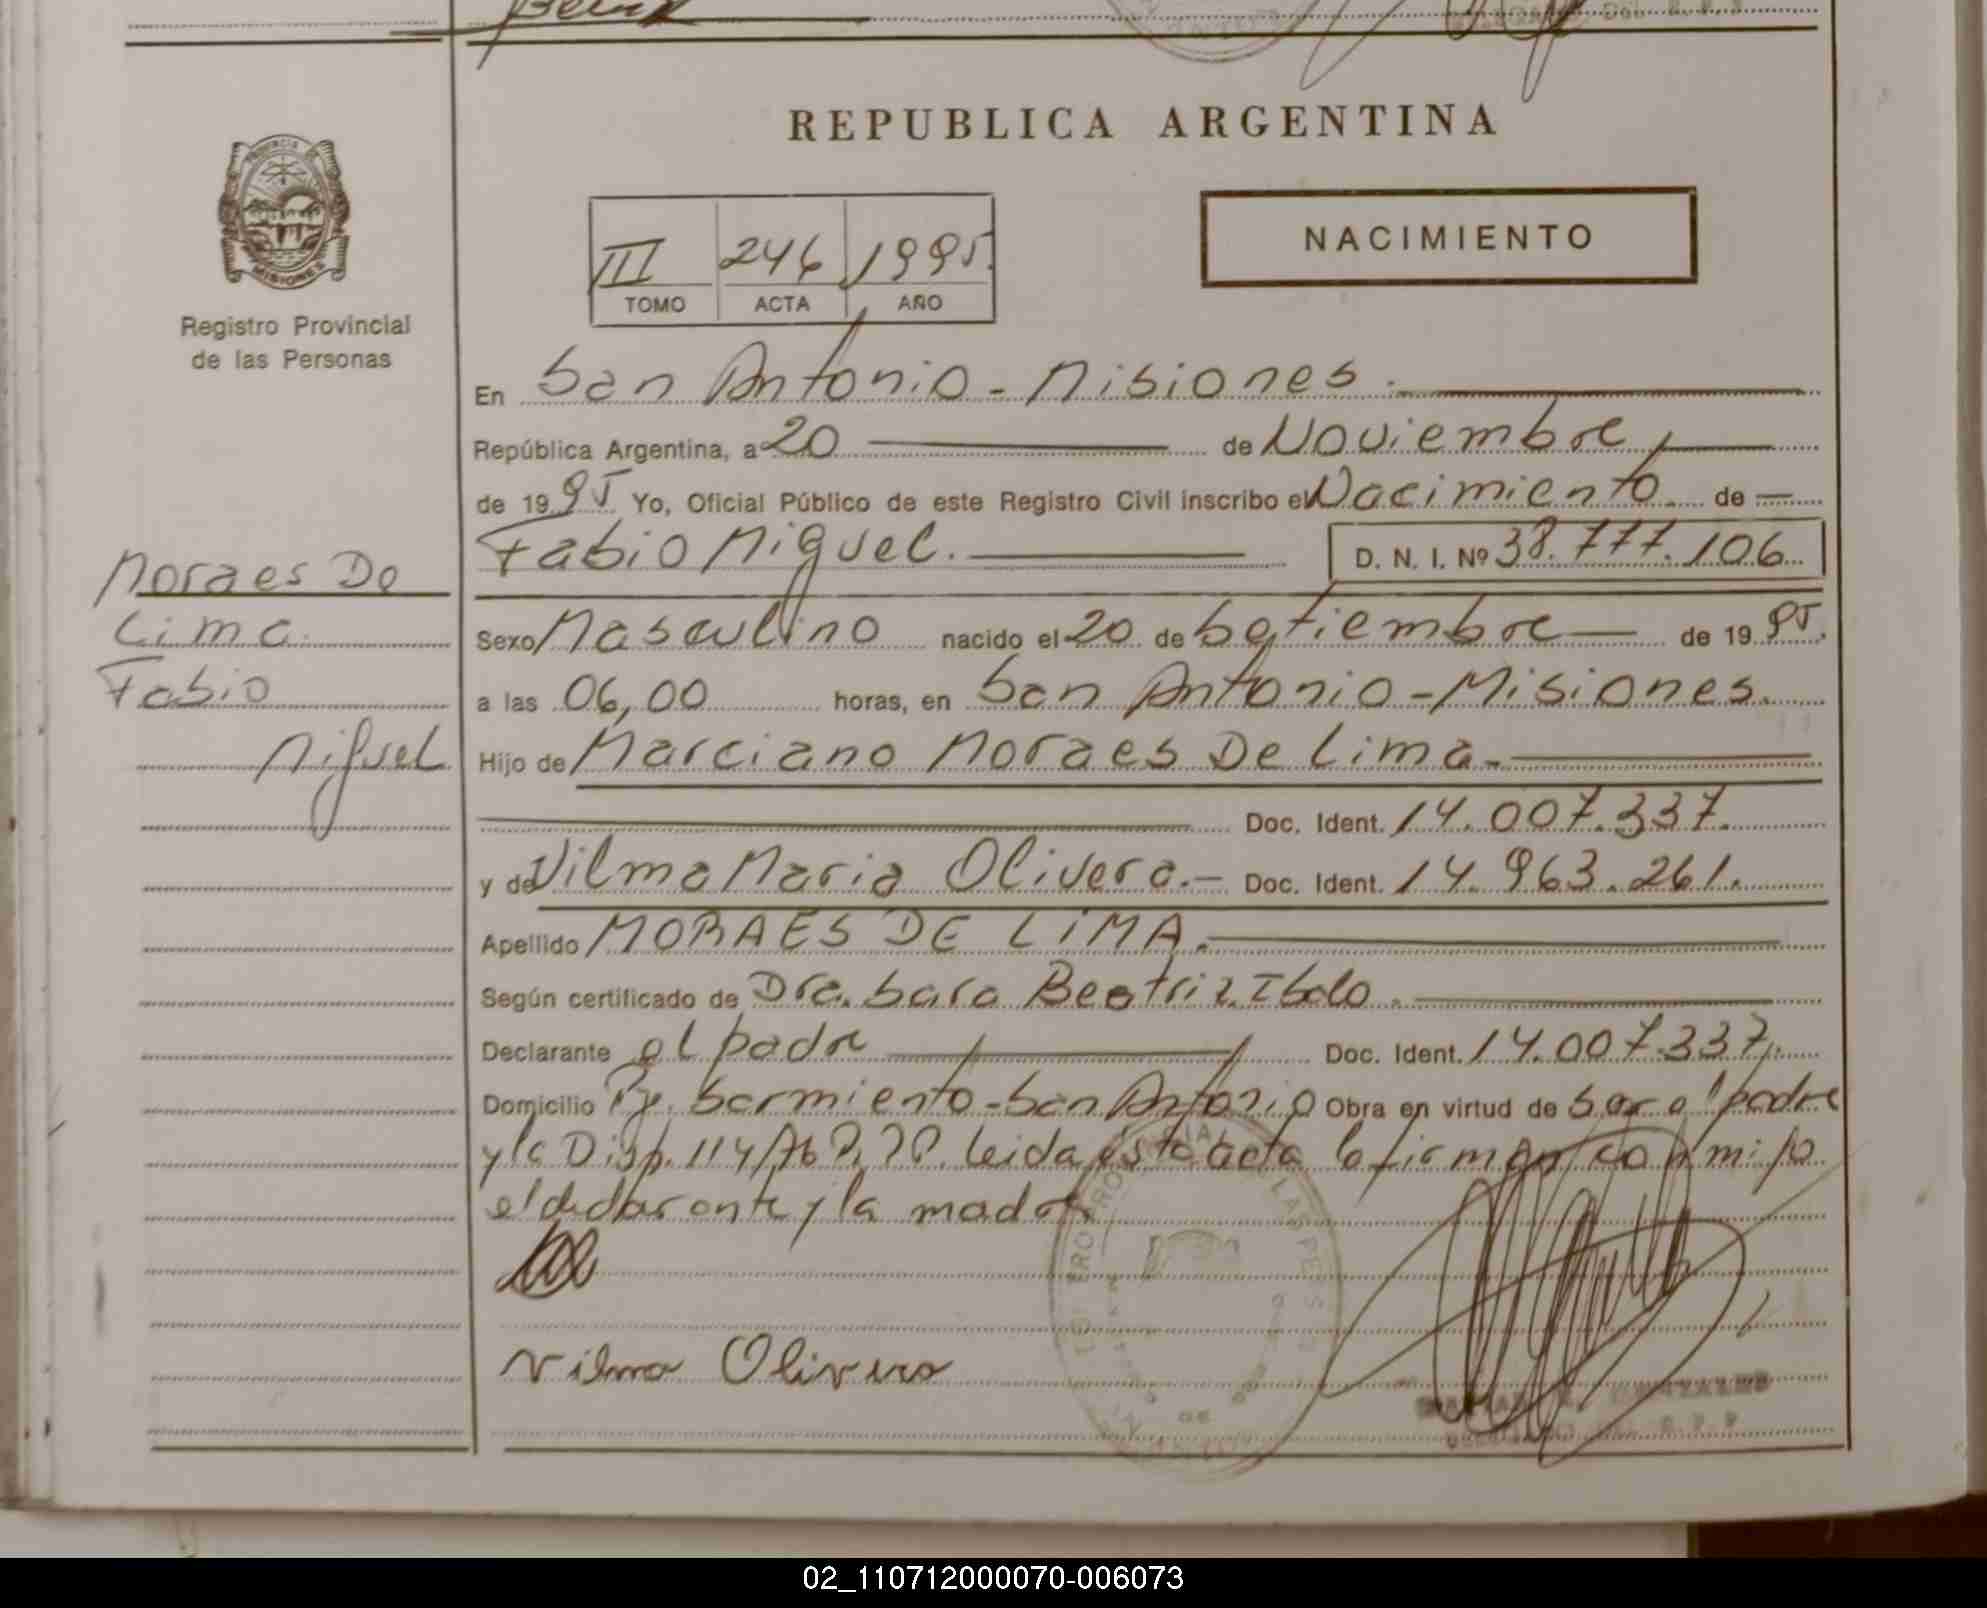 REPUBLICA ARGENTINA
PROVINCIA DE
MISIONES
Registro Provincial
de las Personas
NACIMIENTO
III 246 1995.
TOMO ACTA AÑO
En San Antonio - Misiones.
República Argentina, a 20 de Noviembre
de 1995 Yo, Oficial Público de este Registro Civil inscribo el Nacimiento de
Fabio Miguel. D. N. I. Nº 38.777.106
Moraes De
Lima
Fabio
Miguel
Sexo Masculino nacido el 20 de Setiembre de 1995.
a las 06,00 horas, en San Antonio - Misiones.
Hijo de Marciano Moraes De Lima.
Doc. Ident. 14.007.337.
y de Vilma Maria Olivera. Doc. Ident. 14.963.261.
Apellido MORAES DE LIMA.
Según certificado de Dra. Sara Beatriz
Declarante el padre Doc. Ident. 14.007.337.
Domicilio Sarmiento - San Antonio Obra en virtud de ser el padre
y la Disp. 114/76 Leida ésta acta la firman
el declarante y la madre
Vilma Olivera
02_110712000070-006073